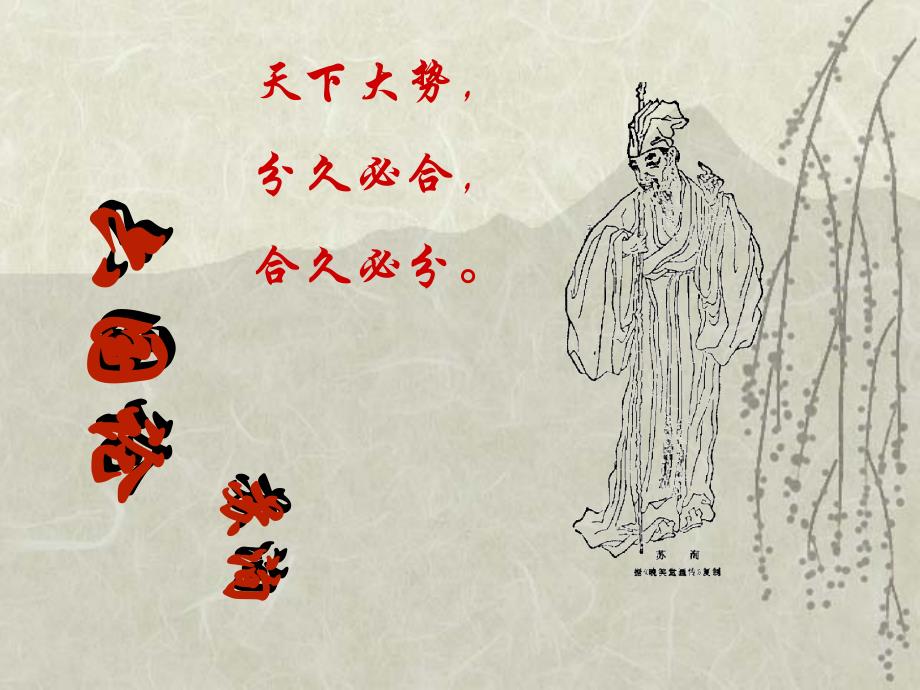 天下大势，
分久必合，
合久必分。
六国论
苏洵
苏 洵
据《晚笑堂画传》复制